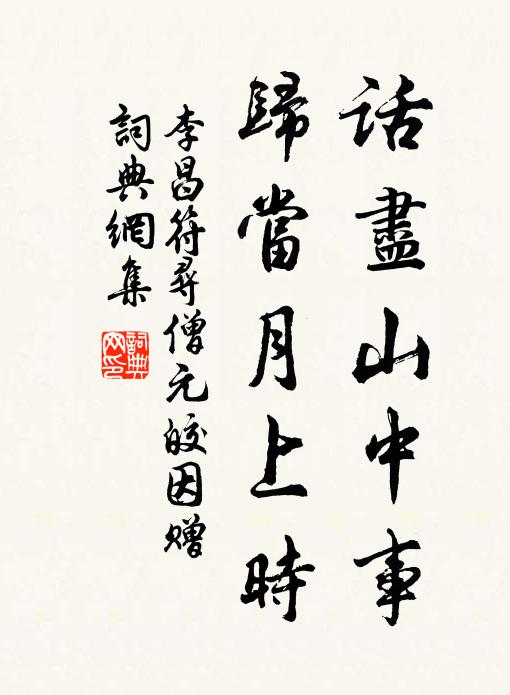 话盡山中事
歸當月上時
李昌符尋僧元皎因贈
詞典網集
詞典網印